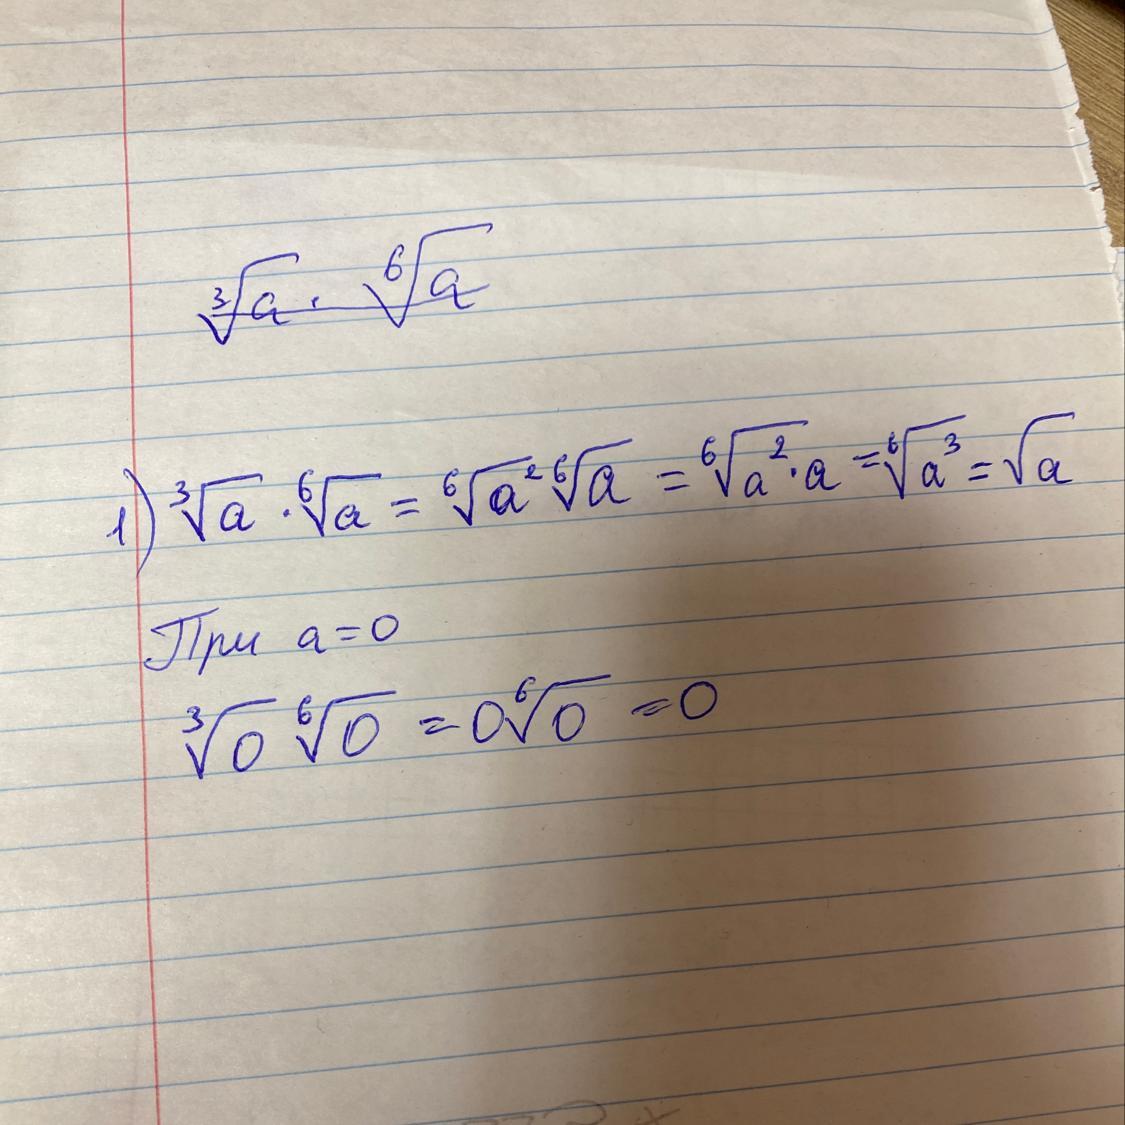 ∛a · ⁶√a
1) ∛a · ⁶√a = ⁶√a² ⁶√a = ⁶√a²·a = ⁶√a³ = √a
При a=0
∛0 ⁶√0 = 0⁶√0 = 0